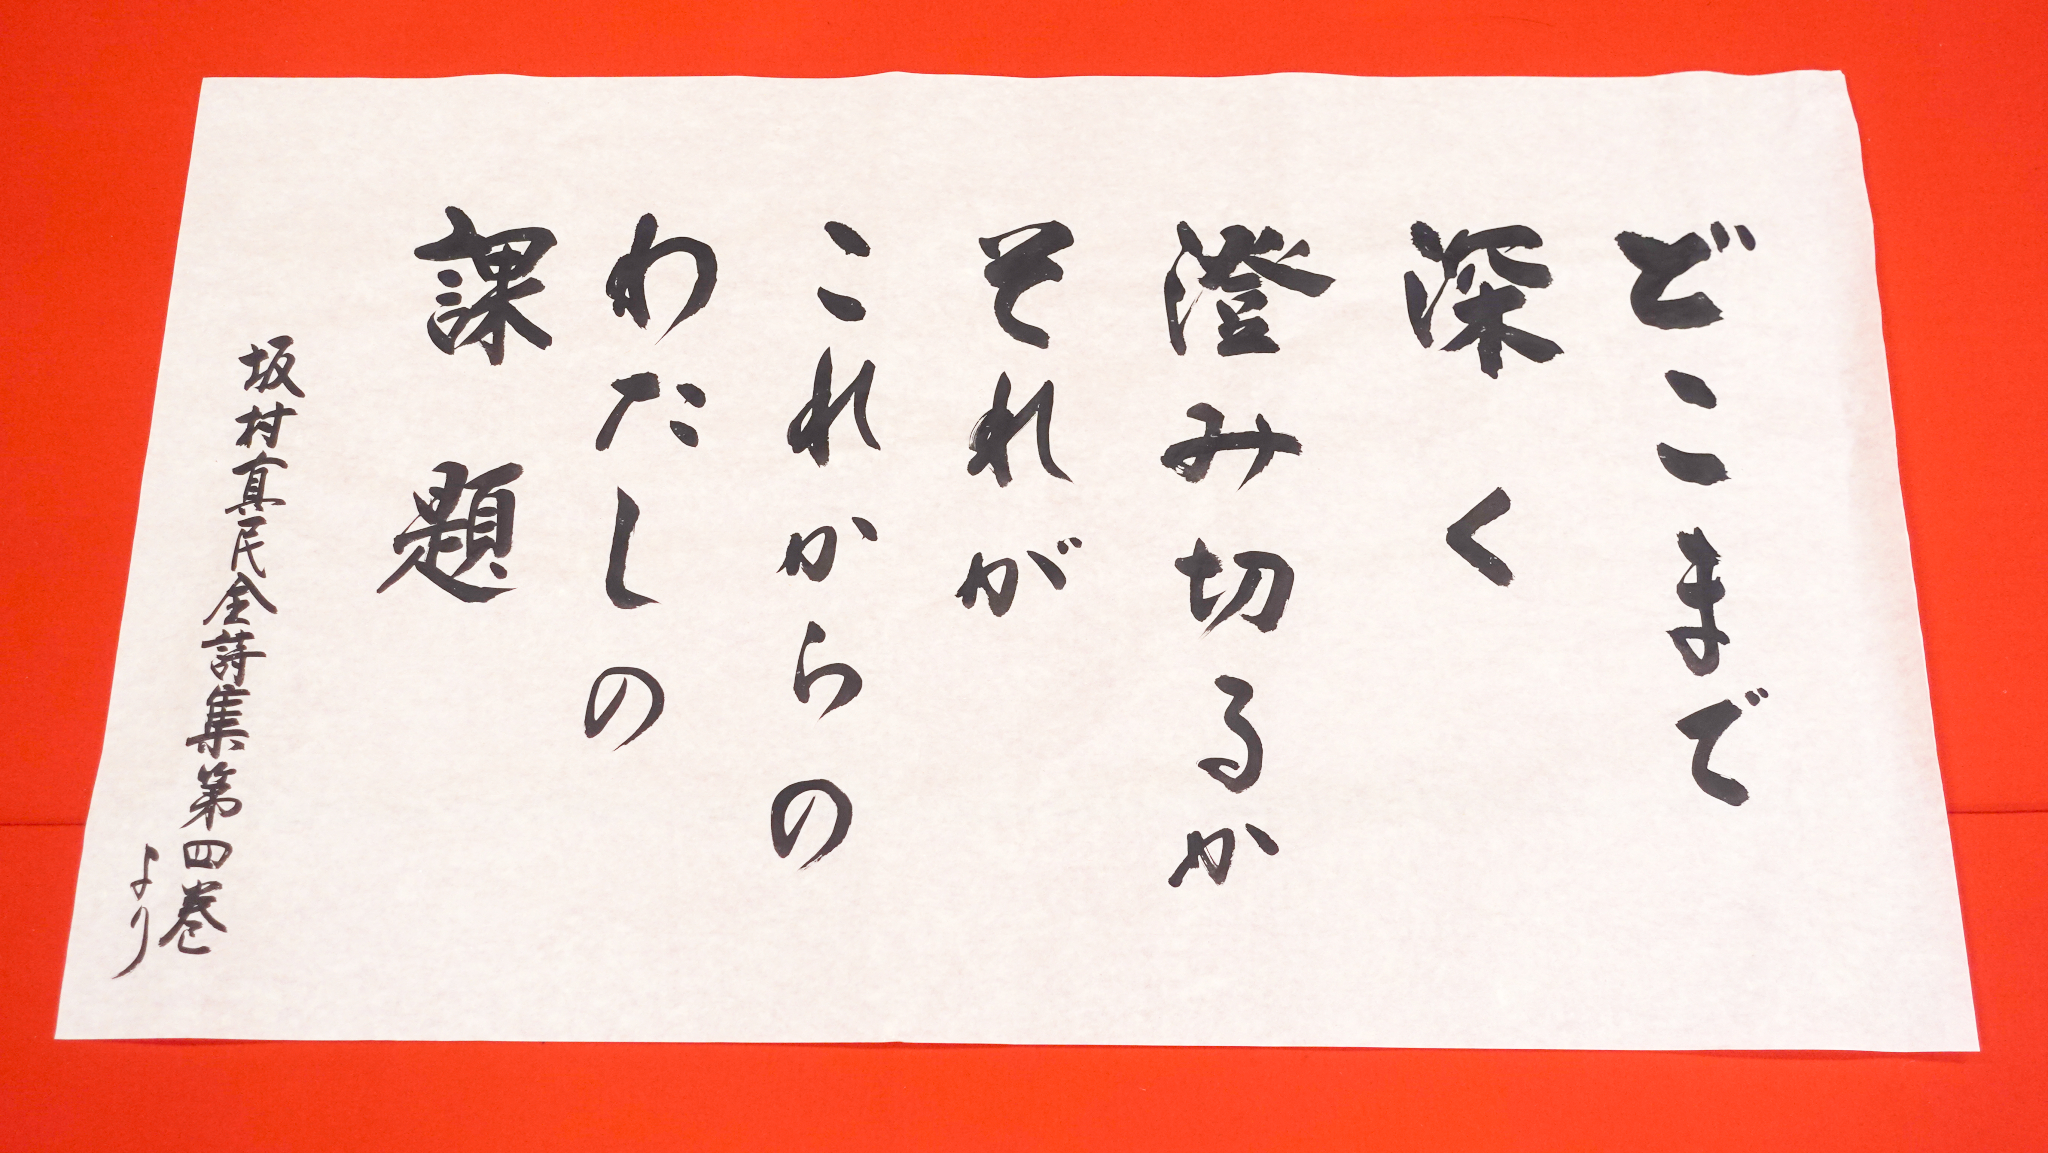 どこまで
深く
澄み切るか
それが
これからの
わたしの
課題
坂村真民全詩集第四巻
より